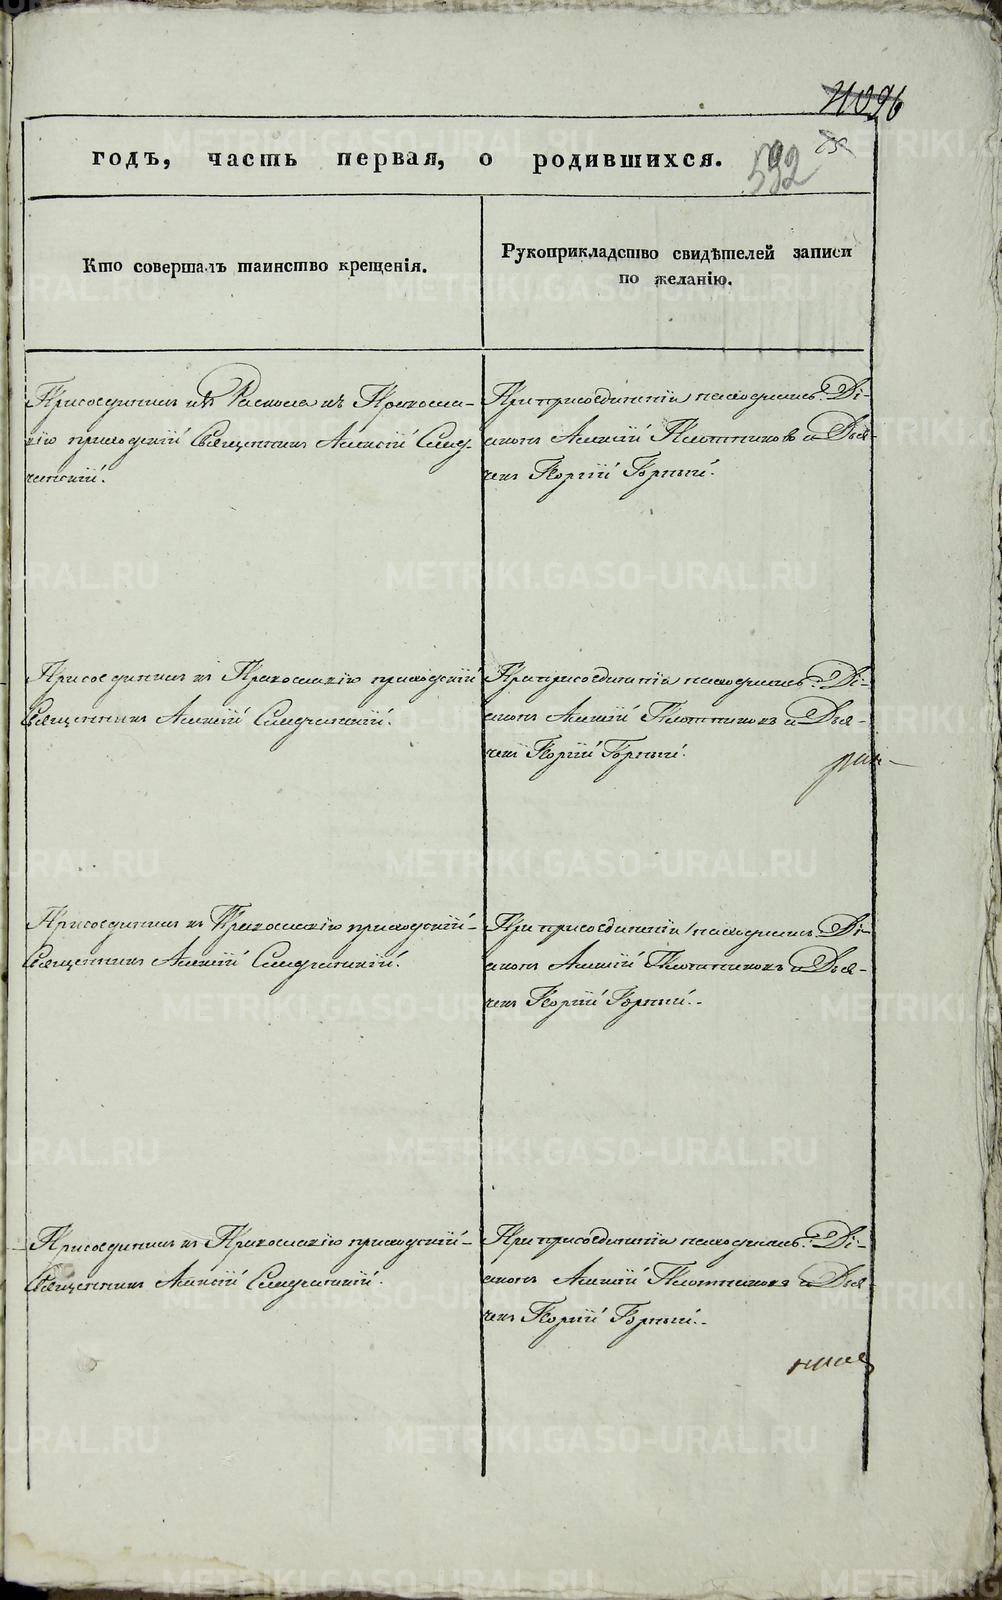 592
годъ, часть первая, о родившихся.
Кто совершалъ таинство крещенія.
Рукоприкладство свидѣтелей записи
по желанію.
Присоединилъ изъ Раскола къ Правосла-
вію приходскій Священникъ Алексій
При присоединеніи находились: Ді-
аконъ Алексій Плотниковъ и Дья-
чекъ Георгій Горный.
Присоединилъ къ Православію приходскій
Священникъ Алексій
При присоединеніи находились: Ді-
аконъ Алексій Плотниковъ и Дья-
чекъ Георгій Горный.
Присоединилъ къ Православію приходскій
Священникъ Алексій
При присоединеніи находились: Ді-
аконъ Алексій Плотниковъ и Дья-
чекъ Георгій Горный.
Присоединилъ къ Православію приходскій
Священникъ Алексій
При присоединеніи находились: Ді-
аконъ Алексій Плотниковъ и Дья-
чекъ Георгій Горный.
METRIKI.GASO-URAL.RU